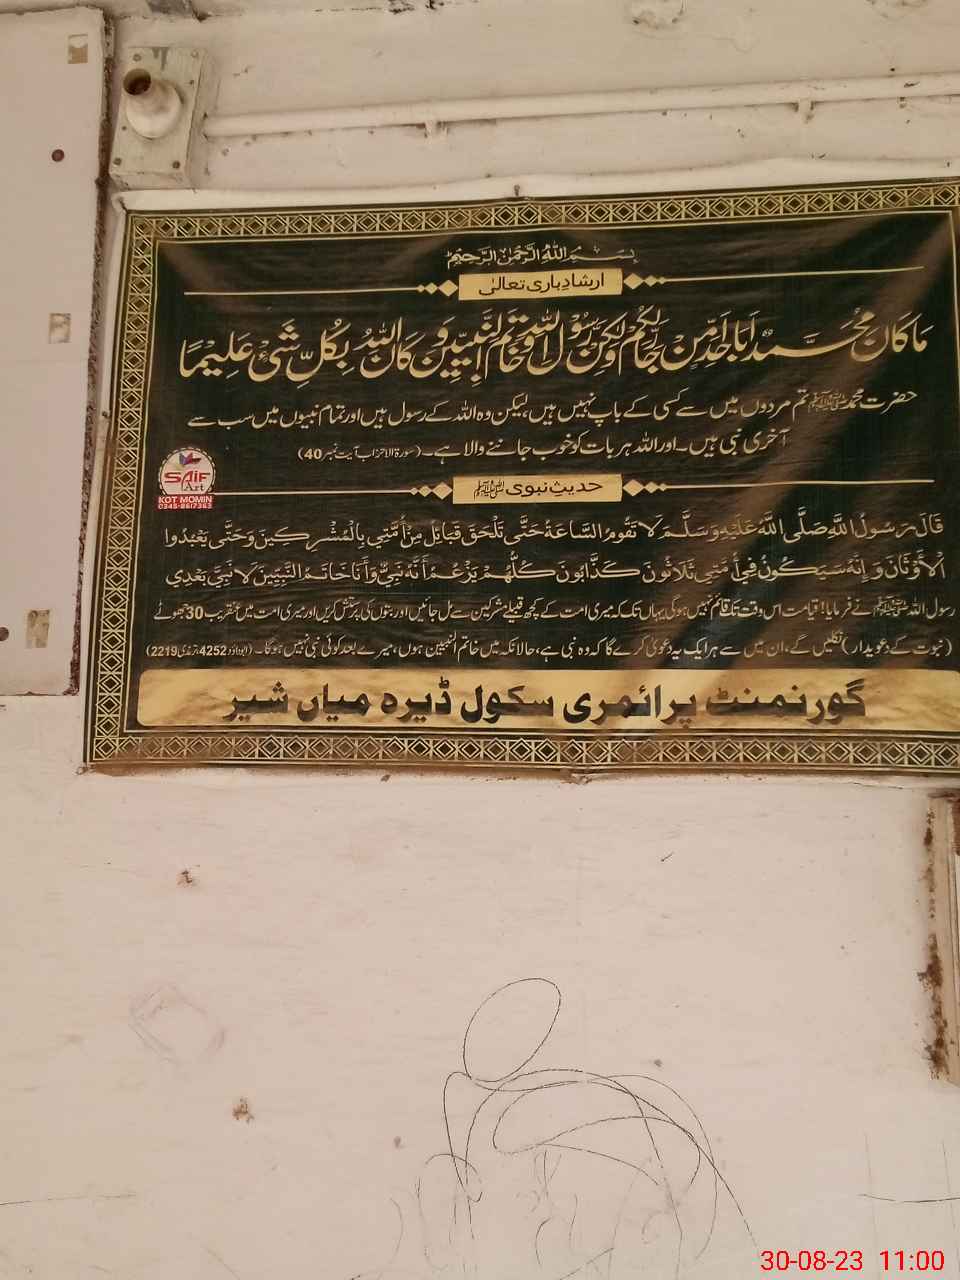 بِسْمِ اللهِ الرَّحْمٰنِ الرَّحِيْمِ
ارشادِباری تعالیٰ
مَا كَانَ مُحَمَّدٌ اَبَا اَحَدٍ مِّنْ رِّجَالِكُمْ وَلٰكِنْ رَّسُوْلَ اللّٰهِ وَخَاتَمَ النَّبِيّٖنَ وَكَانَ اللّٰهُ بِكُلِّ شَىْءٍ عَلِيْمًا
حضرت محمد ﷺ تم مردوں میں سے کسی کے باپ نہیں ہیں، لیکن وہ اللہ کے رسول ہیں اور تمام نبیوں میں سب سے
آخری نبی ہیں۔ اور اللہ ہر بات کو خوب جاننے والا ہے۔ (سورۃ الاحزاب آیت نمبر 40)
SAIF
Art
KOT MOMIN
0345-8617363
حدیثِ نبوی ﷺ
قَالَ رَسُولُ اللَّهِ صَلَّى اللَّهُ عَلَيْهِ وَسَلَّمَ لَا تَقُومُ السَّاعَةُ حَتَّى تَلْحَقَ قَبَائِلُ مِنْ أُمَّتِي بِالْمُشْرِكِينَ وَحَتَّى يَعْبُدُوا
الْأَوْثَانَ وَإِنَّهُ سَيَكُونُ فِي أُمَّتِي ثَلَاثُونَ كَذَّابُونَ كُلُّهُمْ يَزْعُمُ أَنَّهُ نَبِيٌّ وَأَنَا خَاتَمُ النَّبِيِّينَ لَا نَبِيَّ بَعْدِي
رسول اللہ ﷺ نے فرمایا! قیامت اس وقت تک قائم نہیں ہوگی یہاں تک کہ میری امت کے کچھ قبیلے مشرکین سے مل جائیں اور بتوں کی پرستش کریں اور میری امت میں عنقریب 30 جھوٹے
(نبوت کے دعویدار) نکلیں گے، ان میں سے ہر ایک یہ دعویٰ کرے گا کہ وہ نبی ہے، حالانکہ میں خاتم النبیین ہوں، میرے بعد کوئی نبی نہیں ہوگا۔ (ابوداؤد 4252، ترمذی 2219)
گورنمنٹ پرائمری سکول ڈیرہ میاں شیر
30-08-23 11:00